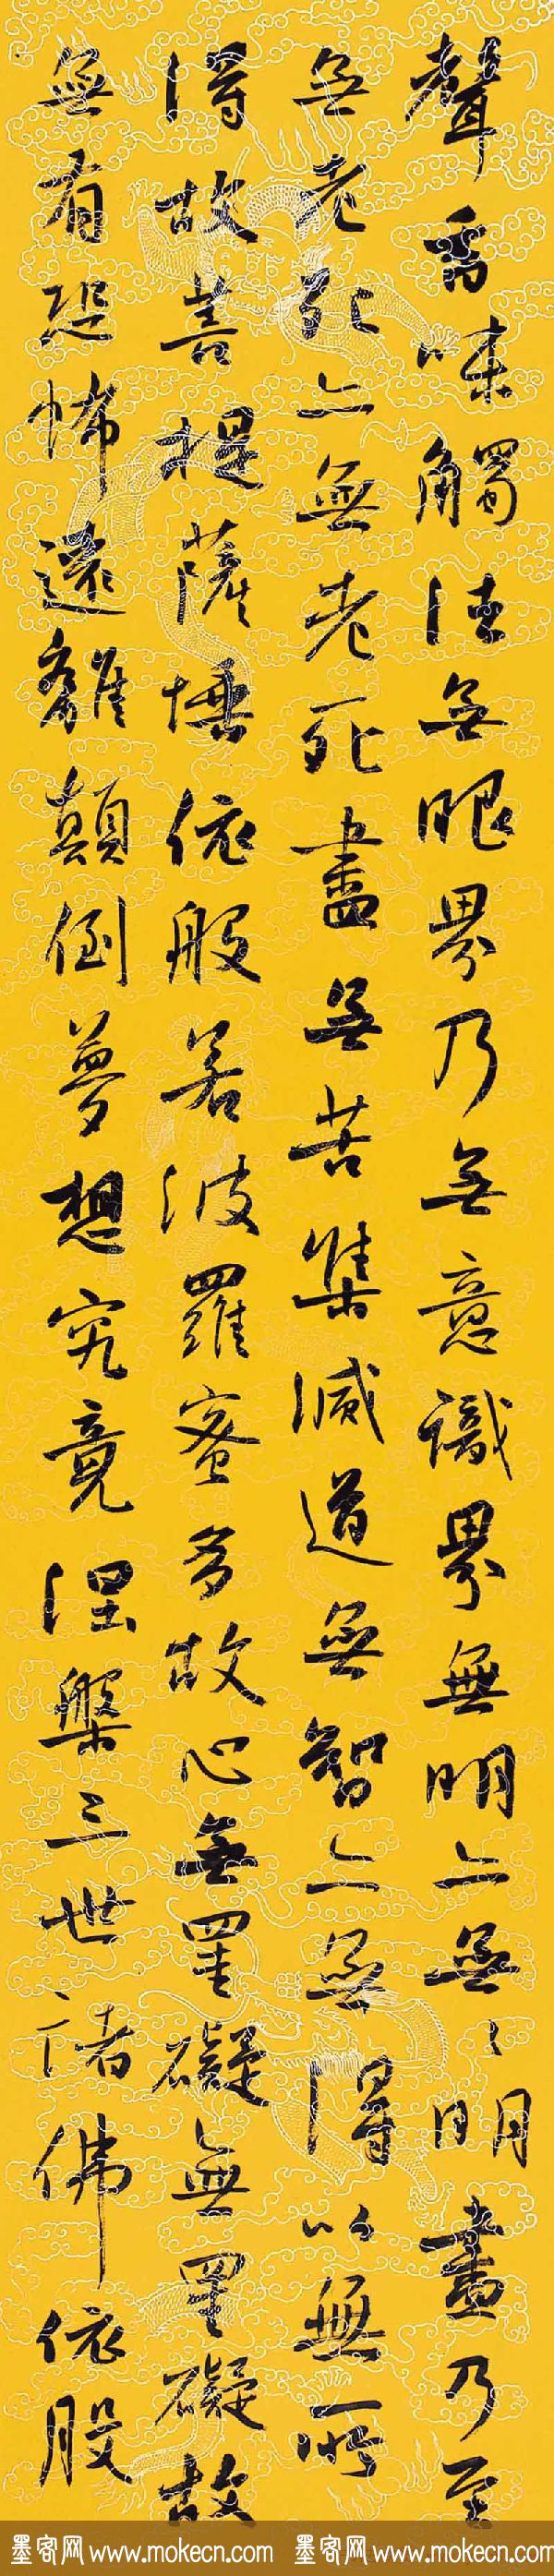 聲香味觸法無眼界乃無意識界無明亦無〻明盡乃至
無老死亦無老死盡無苦集滅道無智亦無得以無所
得故菩提薩埵依般若波羅蜜多故心無罣礙無罣礙故
無有恐怖遠離顛倒夢想究竟涅槃三世諸佛依般
墨客网 www.mokecn.com 墨客网 www.mokecn.com